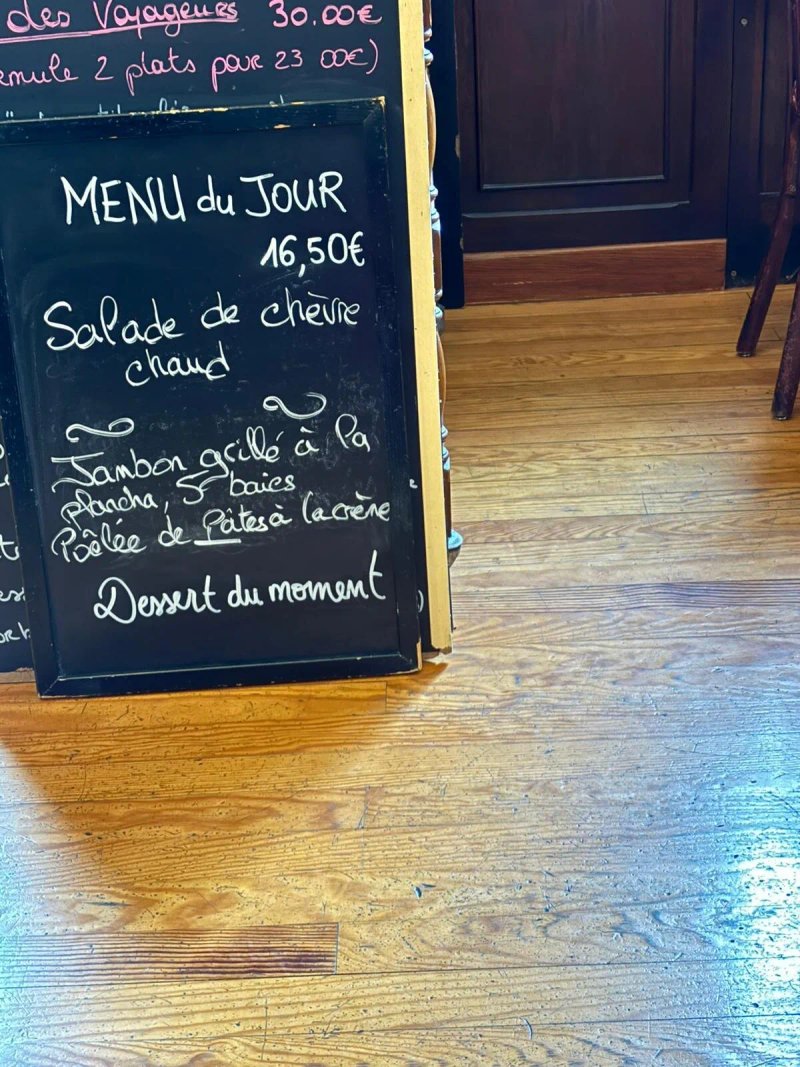 des Voyageurs 30.00€
2 plats pour 23 00€)
MENU du JOUR
16,50€
Salade de chèvre
chaud
Jambon grillé à la
plancha, 5 baies
Poêlée de Pâtes à la crème
Dessert du moment